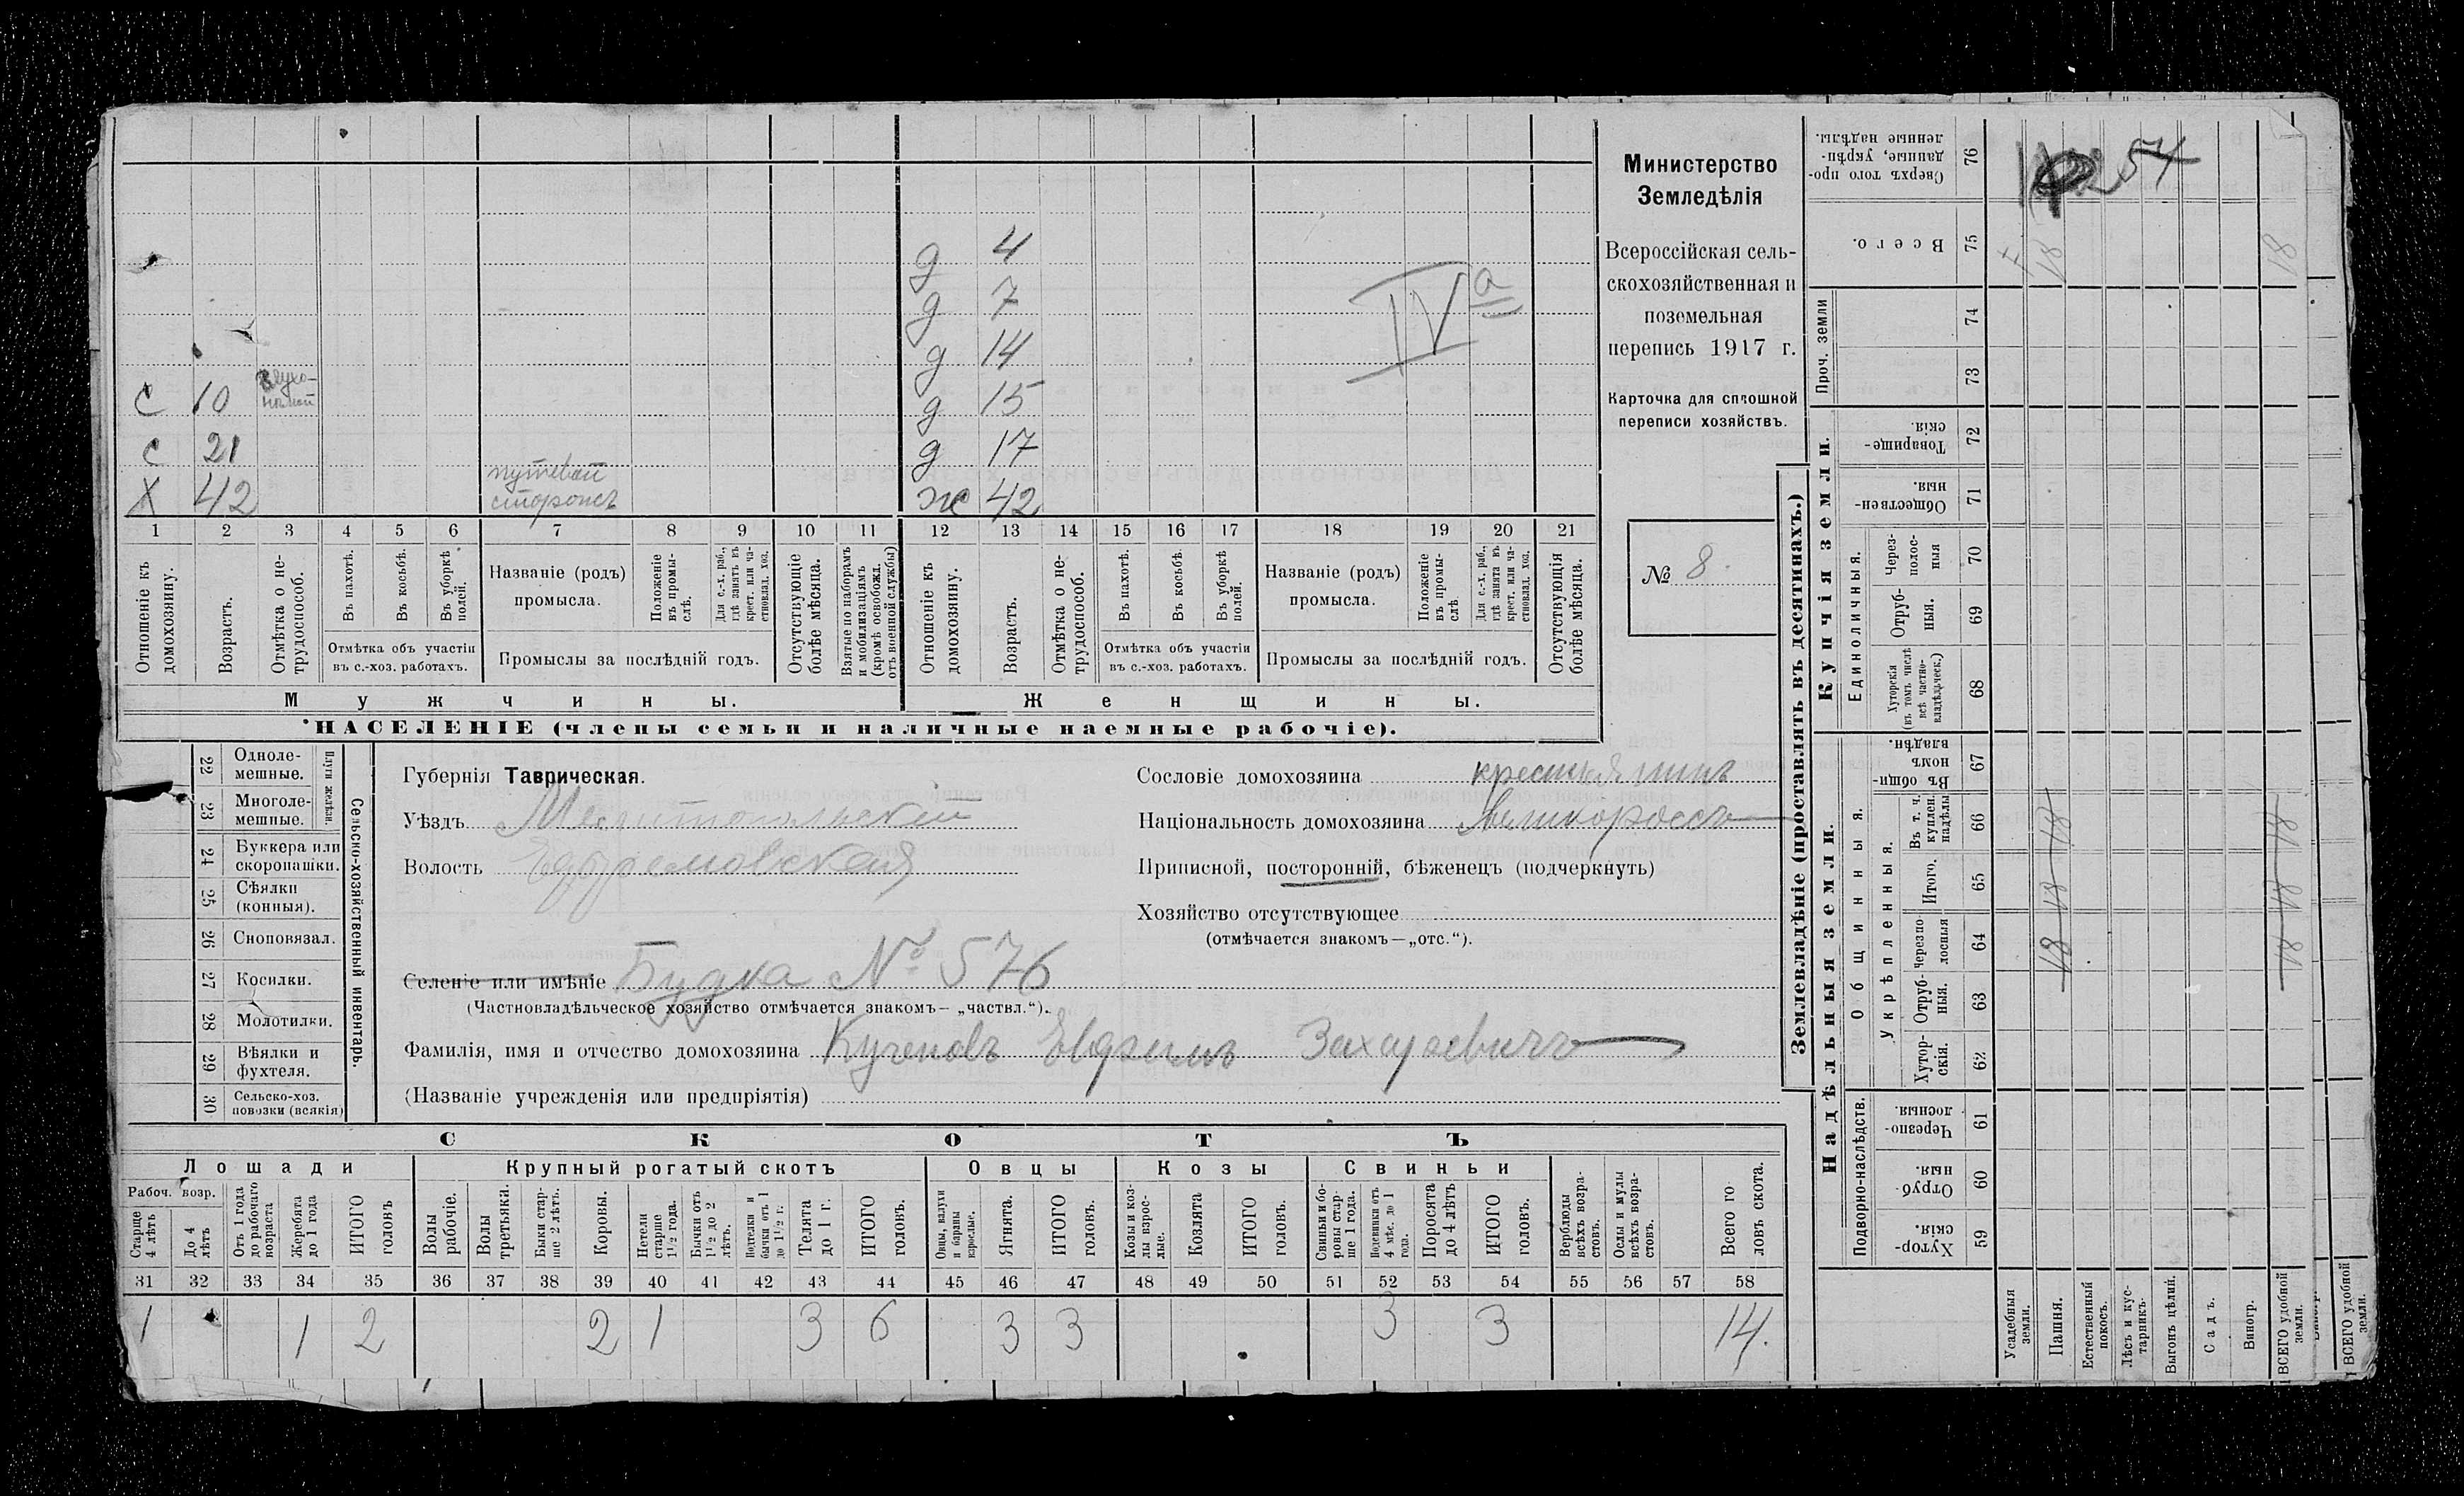 Министерство
Земледѣлія
Всероссійская сель-
скохозяйственная и
поземельная
перепись 1917 г.
Карточка для сплошной
переписи хозяйствъ.
№ 8.
IV а
д 4
д 7
д 14
С 10
д 15
С 21
д 17
Х 42 путевой сторожъ
ж 42
1 2 3 4 5 6 7 8 9 10 11 12 13 14 15 16 17 18 19 20 21
Отношеніе къ домохозяину.
Возрастъ.
Отмѣтка о не-трудоспособ.
Въ пахотѣ.
Въ косьбѣ.
Въ уборкѣ полей.
Отмѣтка объ участіи
въ с.-хоз. работахъ.
Названіе (родъ)
промысла.
Положеніе въ промы-слѣ.
Для с.-х. раб., гдѣ занятъ въ крест. или ча-стновлад. хоз.
Промыслы за послѣдній годъ.
Отсутствующіе болѣе мѣсяца.
Взятые по наборамъ и мобилизаціямъ (кромѣ освобожд. отъ военной службы)
Отношеніе къ домохозяину.
Возрастъ.
Отмѣтка о не-трудоспособ.
Въ пахотѣ.
Въ косьбѣ.
Въ уборкѣ полей.
Отмѣтка объ участіи
въ с.-хоз. работахъ.
Названіе (родъ)
промысла.
Положеніе въ промы-слѣ.
Для с.-х. раб., гдѣ занята въ крест. или ча-стновлад. хоз.
Промыслы за послѣдній годъ.
Отсутствующія болѣе мѣсяца.
Мужчины.
Женщины.
НАСЕЛЕНІЕ (члены семьи и наличные наемные рабочіе).
22 Одноле-мешные.
23 Многоле-мешные.
Плуги желѣзн.
24 Буккера или скоропашки.
25 Сѣялки (конныя).
26 Сноповязал.
27 Косилки.
28 Молотилки.
29 Вѣялки и фухтеля.
30 Сельско-хоз. повозки (всякія)
Сельско-хозяйственный инвентарь.
Губернія Таврическая.
Уѣздъ Мелитопольскій
Волость Ефремовская
Селеніе или имѣніе Будка № 576
(Частновладѣльческое хозяйство отмѣчается знакомъ— „частвл.“).
Фамилія, имя и отчество домохозяина Кученовъ Евфимъ Захарьевичъ
(Названіе учрежденія или предпріятія)
Сословіе домохозяина крестьянинъ
Національность домохозяина Великороссъ
Приписной, посторонній, бѣженецъ (подчеркнуть)
Хозяйство отсутствующее
(отмѣчается знакомъ—„отс.“).
СКОТЪ
Лошади
Крупный рогатый скотъ
Овцы
Козы
Свиньи
Рабоч. возр.
Старше 4 лѣтъ
До 4 лѣтъ
Отъ 1 года до рабочаго возраста
Жеребята до 1 года
ИТОГО головъ
Волы рабочіе.
Волы третьяка.
Быки стар-ше 2 лѣтъ.
Коровы.
Нетели старше 1½ года.
Бычки отъ 1½ до 2 лѣтъ.
Подтелки и бычки отъ 1 до 1½ г.
Телята до 1 г.
ИТОГО головъ.
Овцы, валухи и бараны взрослые.
Ягнята.
ИТОГО головъ.
Козы и коз-лы взрос-лые.
Козлята
ИТОГО головъ.
Свиньи и бо-ровы стар-ше 1 года.
Подсвинки отъ 4 мѣс. до 1 года.
Поросята до 4 лѣтъ
ИТОГО головъ.
Верблюды всѣхъ возра-стовъ.
Ослы и мулы всѣхъ возра-стовъ.
Всего го-ловъ скота.
31 32 33 34 35 36 37 38 39 40 41 42 43 44 45 46 47 48 49 50 51 52 53 54 55 56 57 58
1 1 2 2 1 3 6 3 3 3 3 14.
Землевладѣніе (проставлять въ десятинахъ.)
Купчія земли.
Надѣльныя земли.
Сверхъ того про-данные, укрѣп-ленные надѣлы. 76
Всего. 75
Проч. земли
74
73
Товарище-скія. 72
Обществен-ныя. 71
Единоличныя.
Черес-полос-ныя 70
Отруб-ныя. 69
Хуторскія (въ томъ числѣ всѣ частно-владѣльческ.) 68
Общинныя.
Въ общин-номъ владѣн. 67
Укрѣпленныя.
Въ т. ч. куплен. надѣлы 66
Итого. 65
Черезпо-лосныя 64
Отруб-ныя. 63
Хутор-скія. 62
Подворно-наслѣдств.
Черезпо-лосныя. 61
Отруб-ныя. 60
Хутор-скія. 59
54
18
18
18 18 18
18 18 18
Усадебныя земли.
Пашня.
Естественный покосъ.
Лѣсъ и кус-тарникъ.
Выгонъ цѣлин.
Садъ.
Виногр.
ВСЕГО удобной земли.
ВСЕГО удобной земли.